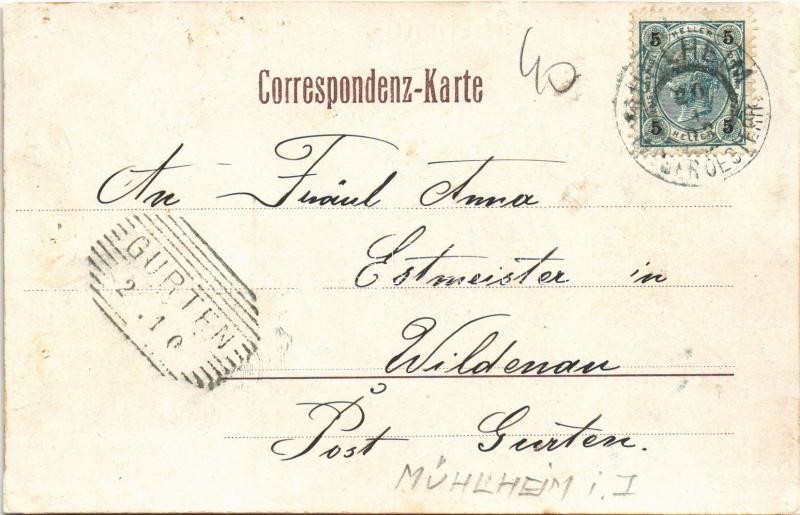 40
5 HELLER 5
5 HELLER 5
Correspondenz-Karte
An Fräul Anna
Estmeister in
Wildenau
Post Gurten.
GURTEN
2.10
MÜHLHEIM i. I